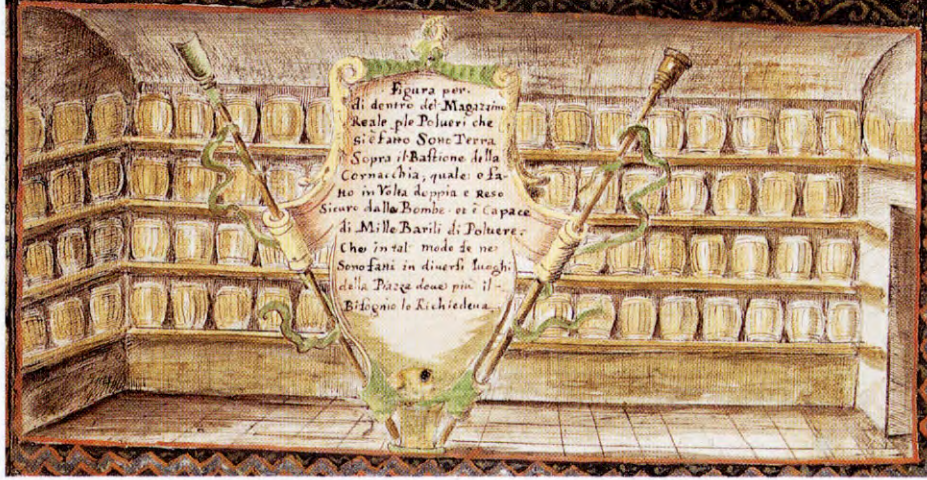 Figura per.
di dentro del Magazzino
Reale ple Polueri che
si è fatto Sotto Terra
Sopra il Bastione della
Cornacchia, quale e fa-
tto in Volta doppia e Reso
Sicuro dalle Bombe. et è Capace
di Mille Barili di Poluere:
Che in tal modo se ne
Sono fatti in diversi luoghi
della Piazza doue più il
Bisognio lo Richiedeua.